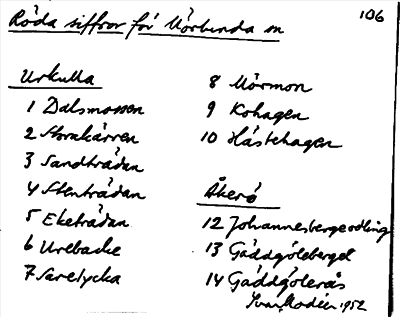 106
Röda siffror för Mörbunda sn
Urkulla
1 Dalsmossen
2 kärren
3 Sandträdan
4 Stenträdan
5 Eketrädan
6 Urebacke
7 Sarelycka
8 Mörmon
9 Kohagen
10 Hästehagen
Åkerö
12 Johannesbergeodling
13 Gäddgöleberget
14 Gäddgöleräs
Ivar Modéer 1952